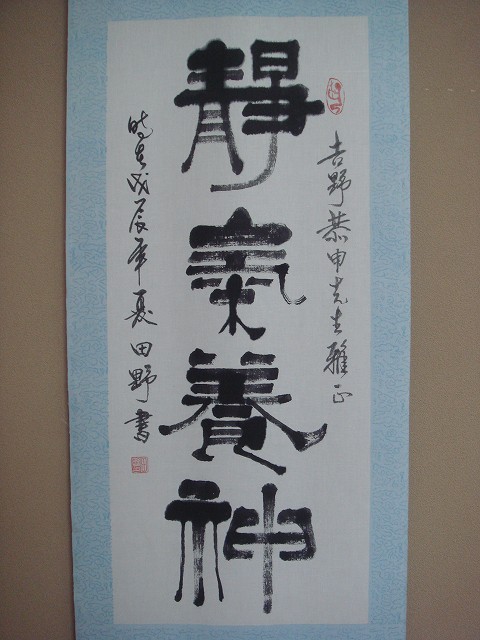 吉野恭申先生雅正
靜氣養神
時在戊辰年夏田野書